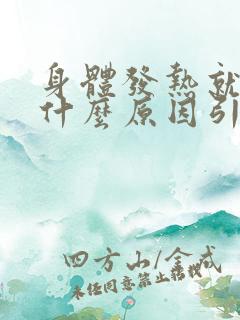 身體發熱就
什麼原因引
四方山/金戒
未經同意禁止轉載